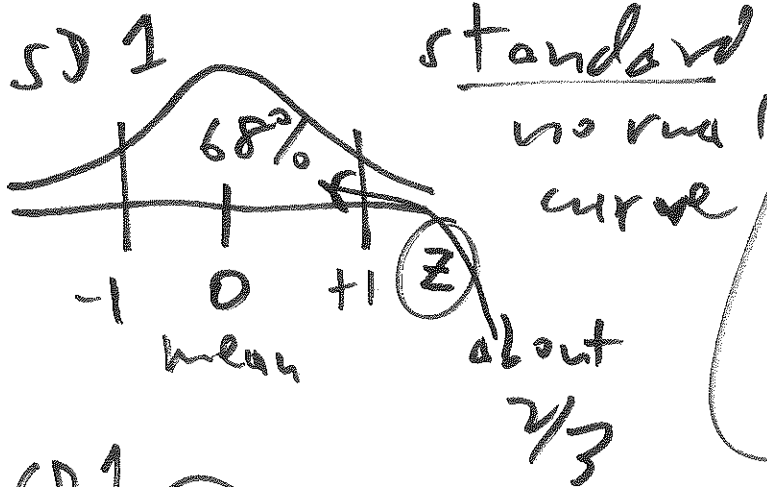 SD 1
standard
normal
curve
68%
-1 0 +1 Z
mean
about
2/3
SD 1